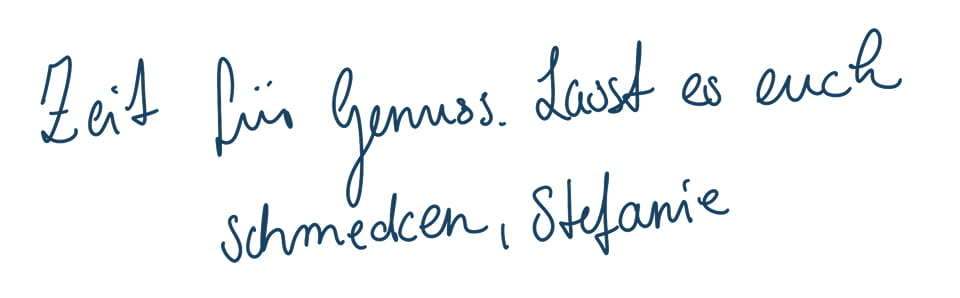 Zeit für Genuss. Lasst es euch
schmecken, Stefanie